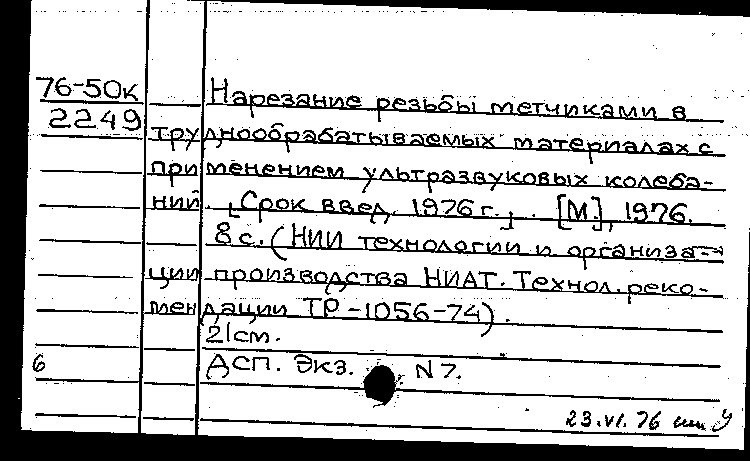 76-50к Нарезание резьбы метчиками в
2249 труднообрабатываемых материалах с
применением ультразвуковых колеба-
ний. [Срок введ. 1976 г.]. [М.], 1976.
8 с. (НИИ технологии и организа-
ции производства НИАТ. Технол. реко-
мендации ТР-1056-74).
21см.
6 ДСП. Экз. N 7.
23.VI.76